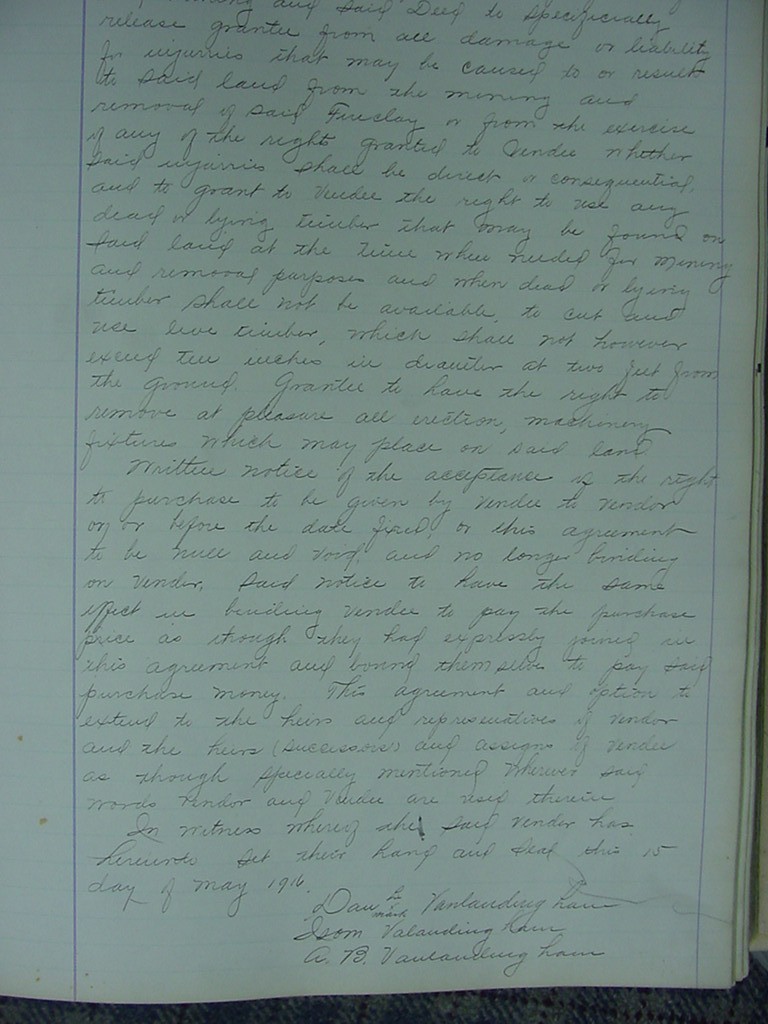 mining and said Deed to specificially
release grantee from all damage or liability
for injurries that may be caused to or result
to said land from the mining and
removal of said Fireclay or from the exercise
of any of the right granted to Vendee whether
said injurries shall be direct or consequential,
and to grant to Vendee the right to use any
dead or lying timber that may be found on
said land at the time when needed for mining
and removal purposes and when dead or lying
timber shall not be available, to cut and
use live timber, which shall not however
exceed ten inches in diameter at two feet from
the ground. Grantee to have the right to
remove at pleasure all erection, machinery
fixtures which may place on said land.
Written notice of the acceptance of the right
to purchase to be given by Vendee to Vendor
on or before the date fixed, or this agreement
to be null and void, and no longer binding
on Vendor, said notice to have the same
effect in binding Vendee to pay the purchase
price as though they had expressly joined in
this agreement and bound themselve to pay said
purchase money. This agreement and option to
extend to the heirs and representatives of Vendor
and the heirs (successors) and assigns of Vendee
as though specially mentioned wherever said
words Vendor and Vendee are used therein
In witness whereof the said Vendor has
hereunto set their hand and seal this 15
day of May 1916.
Dan his mark Vanlandingham
Isom Valandingham
A. B. Vanlandingham